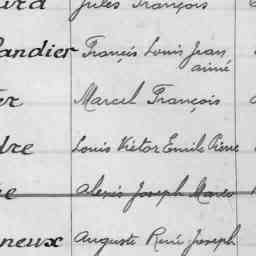 Jules François
andier François Louis Jean
aimé
Marcel François
dre Louis Victor Emile Pierre
Alexis Joseph Marie
neux Auguste René Joseph